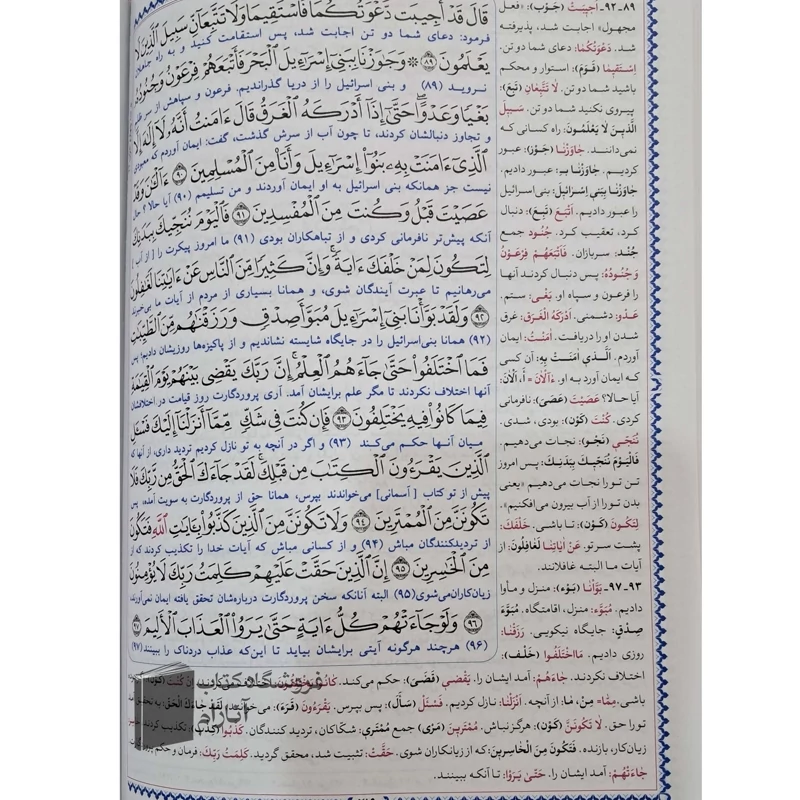 قَالَ قَدْ أُجِيبَت دَّعْوَتُكُمَا فَٱسْتَقِيمَا وَلَا تَتَّبِعَآنِّ سَبِيلَ ٱلَّذِينَ لَا
فرمود: دعای شما دو تن اجابت شد، پس استقامت کنید و به راه جاهلان
يَعْلَمُونَ ٨٩ ۞ وَجَٰوَزْنَا بِبَنِىٓ إِسْرَٰٓءِيلَ ٱلْبَحْرَ فَأَتْبَعَهُمْ فِرْعَوْنُ وَجُنُودُهُۥ
نرویـد (۸۹) و بنی اسرائیل را از دریا گذراندیم. فرعون و سپاهش از سر
بَغْيًا وَعَدْوًا حَتَّىٰٓ إِذَآ أَدْرَكَهُ ٱلْغَرَقُ قَالَ ءَامَنتُ أَنَّهُۥ لَآ إِلَٰهَ إِلَّا
و تجاوز دنبالشان کردند، تا چون آب از سرش گذشت، گفت: ایمان آوردم که معبودی
ٱلَّذِىٓ ءَامَنَتْ بِهِۦ بَنُوٓا۟ إِسْرَٰٓءِيلَ وَأَنَا۠ مِنَ ٱلْمُسْلِمِينَ ٩٠ ءَآلْـَٰٔنَ وَقَدْ
نیست جز همانکه بنی اسرائیل به او ایمان آوردند و من تسلیمم (۹۰) آیا حالا؟ حال
عَصَيْتَ قَبْلُ وَكُنتَ مِنَ ٱلْمُفْسِدِينَ ٩١ فَٱلْيَوْمَ نُنَجِّيكَ بِبَدَنِكَ
آنکه پیش‌تر نافرمانی کردی و از تباهکاران بودی (۹۱) ما امروز پیکرت را [از آب]
لِتَكُونَ لِمَنْ خَلْفَكَ ءَايَةً وَإِنَّ كَثِيرًا مِّنَ ٱلنَّاسِ عَنْ ءَايَٰتِنَا لَغَٰفِلُونَ
می‌رهانیم تا عبرت آیندگان شوی، و همانا بسیاری از مردم از آیات ما بی‌خبرند
٩٢ وَلَقَدْ بَوَّأْنَا بَنِىٓ إِسْرَٰٓءِيلَ مُبَوَّأَ صِدْقٍ وَرَزَقْنَٰهُم مِّنَ ٱلطَّيِّبَٰتِ
(۹۲) همانا بنی‌اسرائیل را در جایگاه شایسته نشاندیم و از پاکیزه‌ها روزیشان دادیم؛ پس
فَمَا ٱخْتَلَفُوا۟ حَتَّىٰ جَآءَهُمُ ٱلْعِلْمُ إِنَّ رَبَّكَ يَقْضِى بَيْنَهُمْ يَوْمَ ٱلْقِيَٰمَةِ
آنها اختلاف نکردند تا مگر علم برایشان آمد. آری پروردگارت روز قیامت در اختلافشان
فِيمَا كَانُوا۟ فِيهِ يَخْتَلِفُونَ ٩٣ فَإِن كُنتَ فِى شَكٍّ مِّمَّآ أَنزَلْنَآ إِلَيْكَ فَسْـَٔلِ
میـان آنـها حکم می‌کنـد (۹۳) و اگر در آنچه به تو نازل کردیم تردید داری، از آنها که
ٱلَّذِينَ يَقْرَءُونَ ٱلْكِتَٰبَ مِن قَبْلِكَ لَقَدْ جَآءَكَ ٱلْحَقُّ مِن رَّبِّكَ فَلَا
پیش از تو کتاب [آسمانی] می‌خواندند بپرس، همانا حق از پروردگارت به سویت آمده، پس
تَكُونَنَّ مِنَ ٱلْمُمْتَرِينَ ٩٤ وَلَا تَكُونَنَّ مِنَ ٱلَّذِينَ كَذَّبُوا۟ بِـَٔايَٰتِ ٱللَّهِ فَتَكُونَ
از تردیدکنندگان مباش (۹۴) و از کسانی مباش که آیات خدا را تکذیب کردند که از
مِنَ ٱلْخَٰسِرِينَ ٩٥ إِنَّ ٱلَّذِينَ حَقَّتْ عَلَيْهِمْ كَلِمَتُ رَبِّكَ لَا يُؤْمِنُونَ
زیان‌کاران‌می‌شوی (۹۵) البته آنانکه سخن پروردگارت درباره‌شان تحقق یافته ایمان نمی‌آورند،
٩٦ وَلَوْ جَآءَتْهُمْ كُلُّ ءَايَةٍ حَتَّىٰ يَرَوُا۟ ٱلْعَذَابَ ٱلْأَلِيمَ ٩٧
(۹۶) هرچند هرگونه آیتی برایشان بیاید تا این‌که عذاب دردناک را ببینند (۹۷)
۸۹-۹۲- اُجیبَتْ (جَوَب): «فعـل
مجهول» اجابت شد، پذیرفته
شد. دَعْوَتُکُما: دعای شما دو تن.
اِسْتَقیما (قَوَمَ): استوار و محکم
باشید شما دو تن. لا تَتَّبِعانِ (تَبِعَ):
پیروی نکنید شما دو تن. سَبیلَ
الَّذینَ لا یَعْلَمُونَ: راه کسانی که
نمی‌داننـد. جاوَزْنا (جَوْز): عبور
کردیـم. جاوَزْنا بـ: عبور دادیم.
جاوَزْنا بِبَنی اِسْرائیلَ: بنی‌اسرائیل
را عبور دادیم. اَتْبَعَ (تَبِعَ): دنبال
کرد، تعقیب کرد. جُنُود جمع
جُنْد: سربازان. فَاَتْبَعَهُمْ فِرْعَوْنُ
وَ جُنُودُهُ: پس دنبال کردند آنها
را فرعون و سپاه او. بَغْی: ستم.
عَدْو: دشمنی. اَدْرَکَهُ الْغَرَقُ: غرق
شدن او را دریافت. آمَنْتُ: ایمان
آوردم. الَّـذی آمَنَتْ بِهِ: آن کسی
که ایمان آورد به او. ءَآلْانَ = أ، اَلْآنَ:
آیا حالا؟ عَصَیْتَ (عَصَیَ): نافرمانی
کردی. کُنْتَ (کَوَنَ): بودی، شدی.
نُنَجّی (نَجَو): نجات می‌دهیـم.
فَالْیَوْمَ نُنَجّیکَ بِبَدَنِکَ: پس امروز
تن تورا نجات می‌دهیم «یعنی
بدن تو را از آب بیرون می‌افکنیم».
لِتَکُونَ (کَوَنَ): تا باشی. خَلْفَکَ:
پشت سر تو. عَنْ آیاتِنا لَغافِلُونَ: از
آیات مـا البتـه غافلانند.
۹۳-۹۷- بَوَّأْنا (بَوَء): منزل و مأوا
دادیـم. مُبَوَّء: منزل، اقامتگاه. مُبَوَّءَ
صِدْقٍ: جایگاه نیکویی. رَزَقْنا:
روزی دادیم. مَا اخْتَلَفُوا (خَلَفَ):
اختلاف نکردند. جاءَهُمْ: آمد ایشان را. یَقْضی (قَضَیَ): حکم می‌کند.
باشی. مِمّا = مِنْ، ما: از آنچه. اَنْزَلْنا: نازل کردیم. فَسْئَلْ (سَأَلَ): پس بپرس. یَقْرَءُونَ (قَرَءَ):
تو را حق. لا تَکُونَنَّ (کَوَنَ): هرگز نباش. مُمْتَرینَ (مَرَی) جمع مُمْتَری: شکّاکان، تردید کنندگان. کَذَّبُوا (کَذَبَ): تکذیب کردند.
زیان‌کار، بازنده. فَتَکُونَ مِنَ الْخاسِرینَ: که از زیانکاران شوی. حَقَّتْ: تثبیت شد، محقق گردید. کَلِمَتُ رَبِّکَ: فرمان و حکم
جاءَتْهُمْ: آمد ایشان را. حَتّی یَرَوُا: تا آنکه ببینند.
فروشگاه کتاب
آنارام